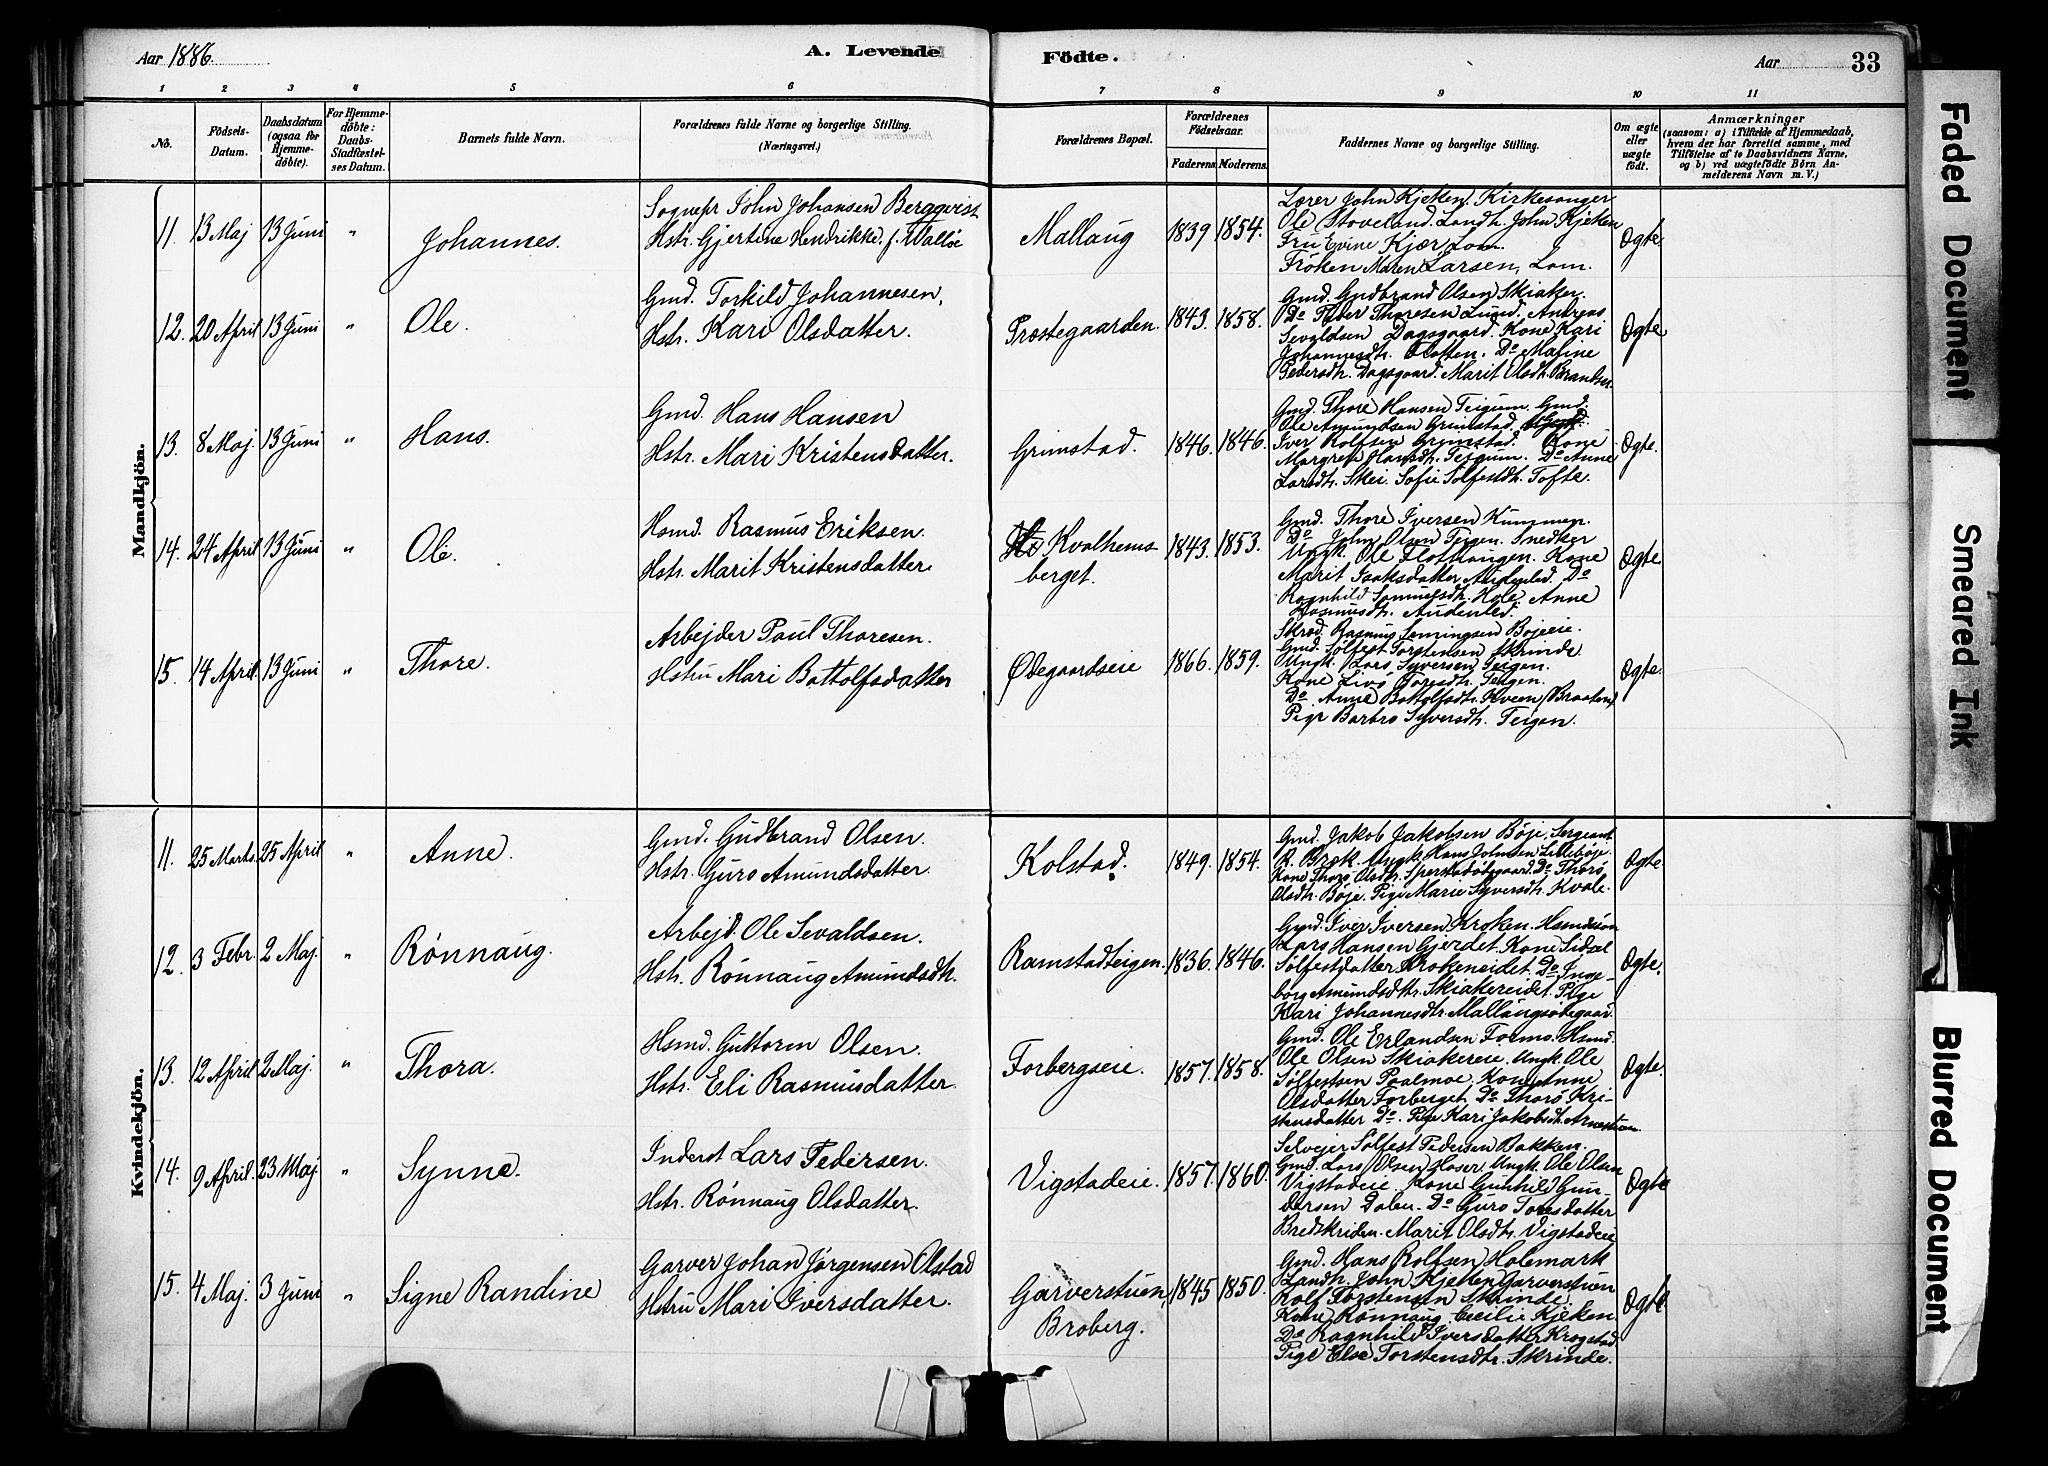 Aar 1886.
A. Levende
Födte.
Aar
33
1 2 3 4 5 6 7 8 9 10 11
No.
Födsels-Datum.
Daabsdatum (ogsaa for Hjemme-döbte).
For Hjemme-döbte: Daabs-Stadfæstel-ses Datum.
Barnets fulde Navn.
Forældrenes fulde Navne og borgerlige Stilling.
(Næringsvei.)
Forældrenes Bopæl.
Forældrenes Födselsaar.
Faderens. Moderens.
Faddernes Navne og borgerlige Stilling.
Om ægte eller uægte födt.
Anmærkninger
(saasom: a) i Tilfælde af Hjemmedaab,
hvem der har forrettet samme, med
Tilföielse af to Daabsvidners Navne,
og b) ved uægtefödte Börn An-
melderens Navn m. V.)
Mandkjön.
11. 13 Maj 13 Juni " Johannes.
Sognepr John Johansen Bergqvist
Hstr. Gjertine Hendrikke f. Walløe
Mallaug 1839 1854.
Lærer John Kjæken. Kirkesanger
Ole Stoveland. Landh. John Kjæken
Fru Evine Kjær Lom.
Frøken Maren Larsen, Lom.
Ægte
12. 20 April 13 Juni " Ole.
Gmd. Torkild Johannesen,
Hstr. Kari Olsdatter.
Prostegaarden. 1843. 1858.
Gmd. Gudbrand Olsen Skiaker.
Do Peder Thoresen Lund. Andreas
Sevaldsen Dagsgaard. Kone Kari
Johannesdtr. Flatten. Do Maline
Pedersdtr. Dagsgaard. Marit Olsdtr.
Ægte
13. 8 Maj. 13 Juni " Hans.
Gmd. Hans Hansen
Hstr. Mari Kristensdatter.
Grimstad. 1846. 1846.
Gmd. Thore Hansen Teigum. Gmd.
Ole Amundsen Grimstad.
Iver Rolfsen Grimstad. Kone
Margrete Hansdtr. Teigum. Do Anne
Larsdtr. Skei. Sofie Sølfestdtr. Tofte.
Ægte.
14. 24 April 13 Juni " Ole.
Hsmd. Rasmus Eriksen.
Hstr. Marit Kristensdatter.
Kvalhems-
berget.
1843. 1853.
Gmd. Thore Iversen Kummen.
Do John Olsen Teigen. Snedker
Ungk. Ole Flothaugen. Kone
Marit Isaksdatter Andenled. Do
Ragnhild Samuelsdtr. Hole. Anne
Rasmusdtr. Andenled.
Ægte.
15. 14 April. 13 Juni " Thore.
Arbejder Poul Thoresen.
Hstru Mari Bottolfsdatter
Ødegaardseie 1866. 1859.
Skræd. Rasmus Bøjeeie.
Gmd. Sølfest Torstensen Skrinde
Ungk. Lars Syversen Teigen.
Kone Livø Toresdtr. Teigen.
Do Anne Bottolfsdtr. Kveen (Braaten)
Pige Barbro Syversdtr. Teigen.
Ægte.
Kvindekjön.
11. 25 Marts. 25 April " Anne.
Gmd. Gudbrand Olsen.
Hstr. Guro Amundsdatter.
Kolstad. 1849. 1854.
Gmd. Jakob Jakobsen Bøje. Sergeant
R. Bræk. Ungk. Hans Johnsen Lillebøje.
Kone Thorø Olsdtr. Sperstadødegaard. Do Thorø
Olsdtr. Bøje. Pige Marie Syversdtr. Kvale.
Ægte.
12. 3 Febr. 2 Maj. " Rønnaug.
Arbejd. Ole Sevaldsen.
Hstr. Rønnaug Amundsdtr.
Ramstadteigen. 1836. 1846.
Gmd. Iver Iversen Kroken. Hsmdssøn
Lars Hansen Gjerdet. Kone Sidsel
Sølfestdatter Krokeneidet. Do Inge-
borg Amundsdtr. Skiakereidet. Pige
Kari Johannesdtr. Mallaugsødegaard.
Ægte.
13. 12 April 2 Maj. " Thora.
Hsmd. Guttorm Olsen.
Hstr. Eli Rasmusdatter.
Forbergseie. 1857. 1858.
Gmd. Ole Erlandsen Formo. Hsmd.
Ole Olsen Skiakereie. Ungk. Ole
Sølfestsen Paalmoe. Kone Anne
Olsdatter Forberget. Do Thorø Kri-
stensdatter Do. Pige Kari Jakobsdtr.
Ægte.
14. 9 April. 23 Maj " Synne.
Inderst Lars Pedersen.
Hstr. Rønnaug Olsdatter.
Vigstadeie. 1857. 1860.
Selvejer Sølfest Pedersen Bakken.
Gmd. Lars Olsen Hoser. Ungk. Ole Olsen
Vigstadeie. Kone Gunhild Gun-
dersen Dalen. Do Guro Toresdatter
Bredskriden. Marit Olsdtr. Vigstadeie
Ægte
15. 4 Maj. 3 Juni " Signe Randine
Garver Johan Jørgensen Olstad
Hstru Mari Iversdatter.
Garverstuen,
Broberg.
1845 1850.
Gmd. Hans Rolfsen Holemark
Landh. John Kjæken Garverstuen
Rolf Torstensen Skrinde.
Kone Rønnaug Cecilie Kjæken
Do Ragnhild Iversdatter Krogstad
Pige Else Torstensdtr. Skrinde.
Ægte
Faded Document
Smeared Ink
Blurred Document